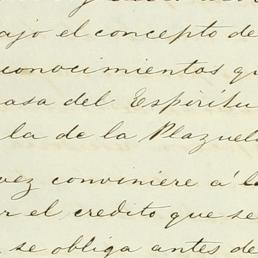 ajo el concepto de
conocimientos qu
asa del Espíritu
la de la Plazuel
vez conviniere á l
r el credito que se
se obliga antes de